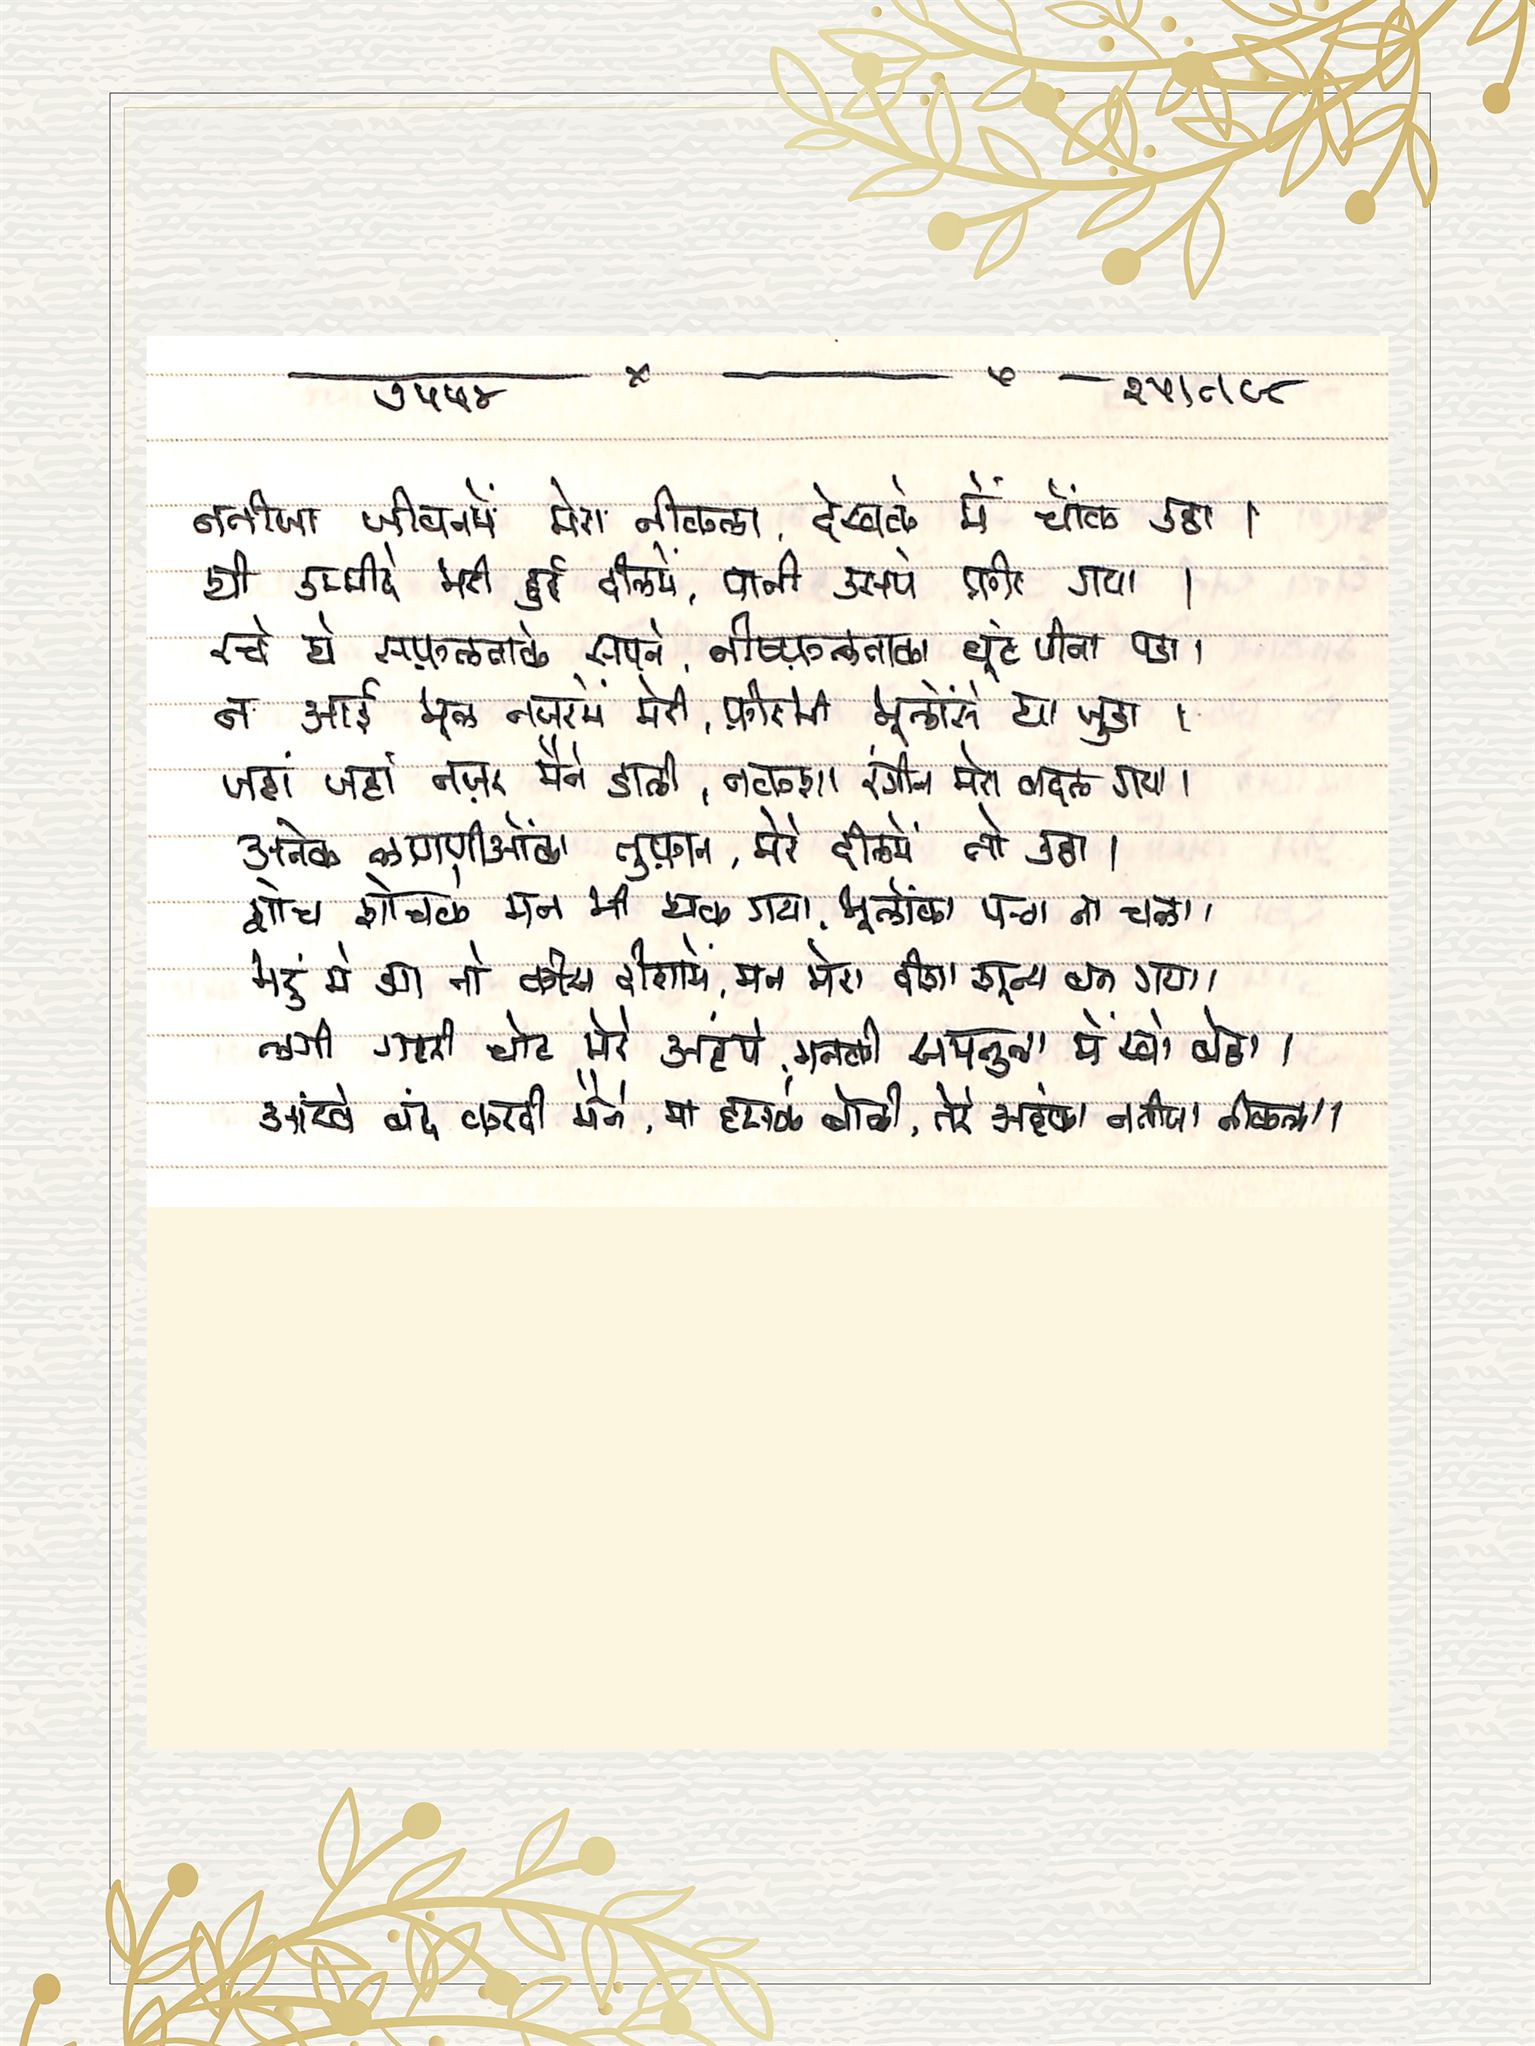 ७५५४ २५।८।९८
नतीजा जीवनमें मेरा नीकला, देखके में चोंक उठा।
थी उम्मीदे भरी हुई दीलमें, पानी उसपे फीर गया।
रचे थे सफ़लताके सपने, नीष्फ़लताका घूंट पीना पडा।
न आई भूल नजरमें मेरी, फ़ीरभी भूलोंसे था जुडा।
जहां जहां नज़र मैंने डाली, नकशा रंगीन मेरा बदल गया।
अनेक लागणीओंका तुफ़ान, मेरे दीलमें तो उठा।
शोच शोचके मन भी थक गया, भूलोंका पता ना चला।
मुडुं मे अब तो कीस दीशामें, मन मेरा दीशा शून्य बन गया।
लगी गहरी चोट मेरे अहंपे, मनकी समतुला में खो बेठा।
आंखे बंद करदी मैंने, मा हसके बोली, तेरे अहंका नतीजा नीकला।